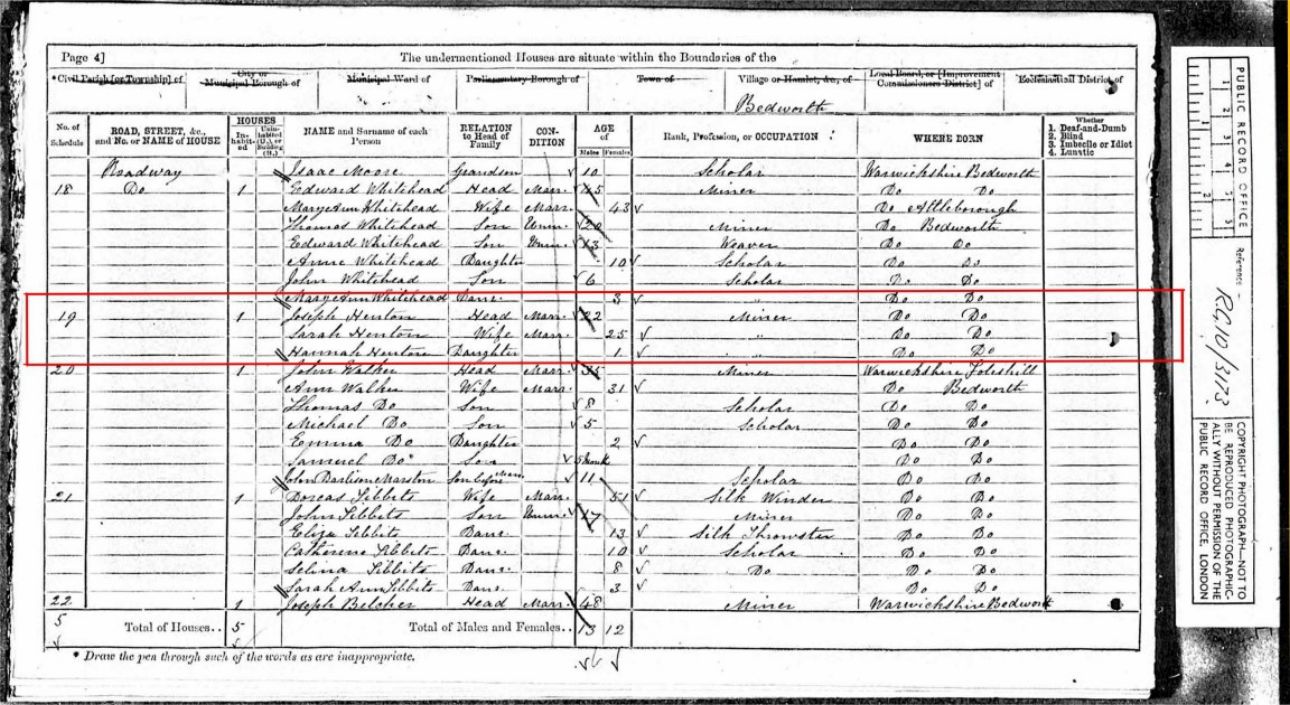 Page 4] The undermentioned Houses are situate within the Boundaries of the
*Civil Parish [or Township] of City or Municipal Borough of Municipal Ward of Parliamentary Borough of Town of Village or Hamlet, &c., of Local Board, or [Improvement Commissioners District] of Ecclesiastical District of
Bedworth
No. of Schedule ROAD, STREET, &c., and No. or NAME of HOUSE HOUSES Inhabited Uninhabited (U.), or Building (B.) NAME and Surname of each Person RELATION to Head of Family CONDITION AGE of Males Females Rank, Profession, or OCCUPATION WHERE BORN Whether 1. Deaf-and-Dumb 2. Blind 3. Imbecile or Idiot 4. Lunatic
Roadway Isaac Moore Grandson 10 Scholar Warwickshire Bedworth
18 Do 1 Edward Whitehead Head Marr. 45 Miner Do Do
Mary Ann Whitehead Wife Marr. 43 Do Attleborough
Thomas Whitehead Son Unm. 20 Miner Do Bedworth
Edward Whitehead Son Unm. 13 Weaver Do Do
Anne Whitehead Daughter 10 Scholar Do Do
John Whitehead Son 6 Scholar Do Do
Mary Ann Whitehead Daur. 3 " Do Do
19 1 Joseph Henton Head Marr. 22 Miner Do Do
Sarah Henton Wife Marr. 25 " Do Do
Hannah Henton Daughter 1 " Do Do
20 1 John Walker Head Marr. 35 Miner Warwickshire Foleshill
Ann Walker Wife Marr. 31 Do Bedworth
Thomas Do Son 8 Scholar Do Do
Michael Do Son 5 Scholar Do Do
Emma Do Daughter 2 Do Do
Samuel Do Son 5 Month Do Do
John Darlison Marston Son before 11 Scholar Do Do
21 1 Dorcas Sibbits Wife Marr. 51 Silk Winder Do Do
John Sibbits Son Unm. 17 Miner Do Do
Eliza Sibbits Daur. 13 Silk Throwster Do Do
Catherine Sibbits Daur. 10 Scholar Do Do
Selina Sibbits Daur. 8 Do Do Do
Sarah Ann Sibbits Daur. 3 Do Do
22 1 Joseph Belcher Head Marr. 48 Miner Warwickshire Bedworth
5 Total of Houses.. 5 Total of Males and Females.. 13 12
* Draw the pen through such of the words as are inappropriate.
PUBLIC RECORD OFFICE
Reference :-
RG10/3173
COPYRIGHT PHOTOGRAPH—NOT TO
BE REPRODUCED PHOTOGRAPHIC-
ALLY WITHOUT PERMISSION OF THE
PUBLIC RECORD OFFICE, LONDON